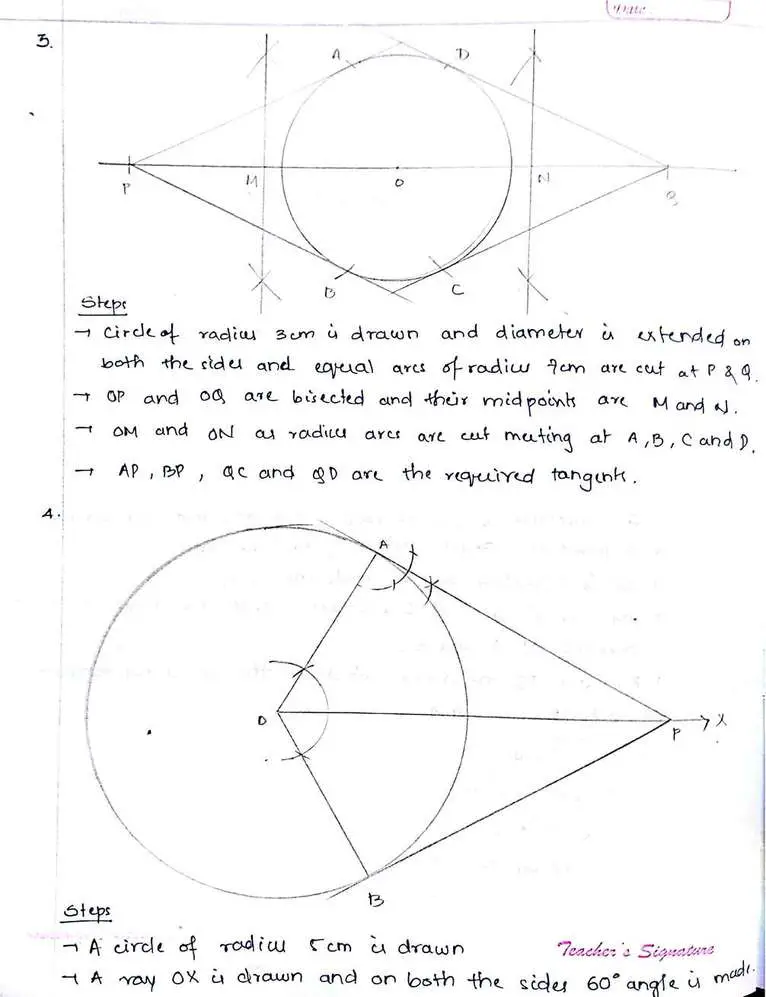 Date
3.
A D
P M O N Q
B C
Steps
→ Circle of radius 3cm is drawn and diameter is extended on
both the sides and equal arcs of radius 7cm are cut at P & Q.
→ OP and OQ are bisected and their midpoints are M and N.
→ OM and ON as radius arcs are cut meeting at A, B, C and D.
→ AP, BP, QC and QD are the required tangents.
4.
A
O P X
B
Steps
→ A circle of radius 5cm is drawn
Teacher's Signature
→ A ray OX is drawn and on both the sides 60° angle is made.